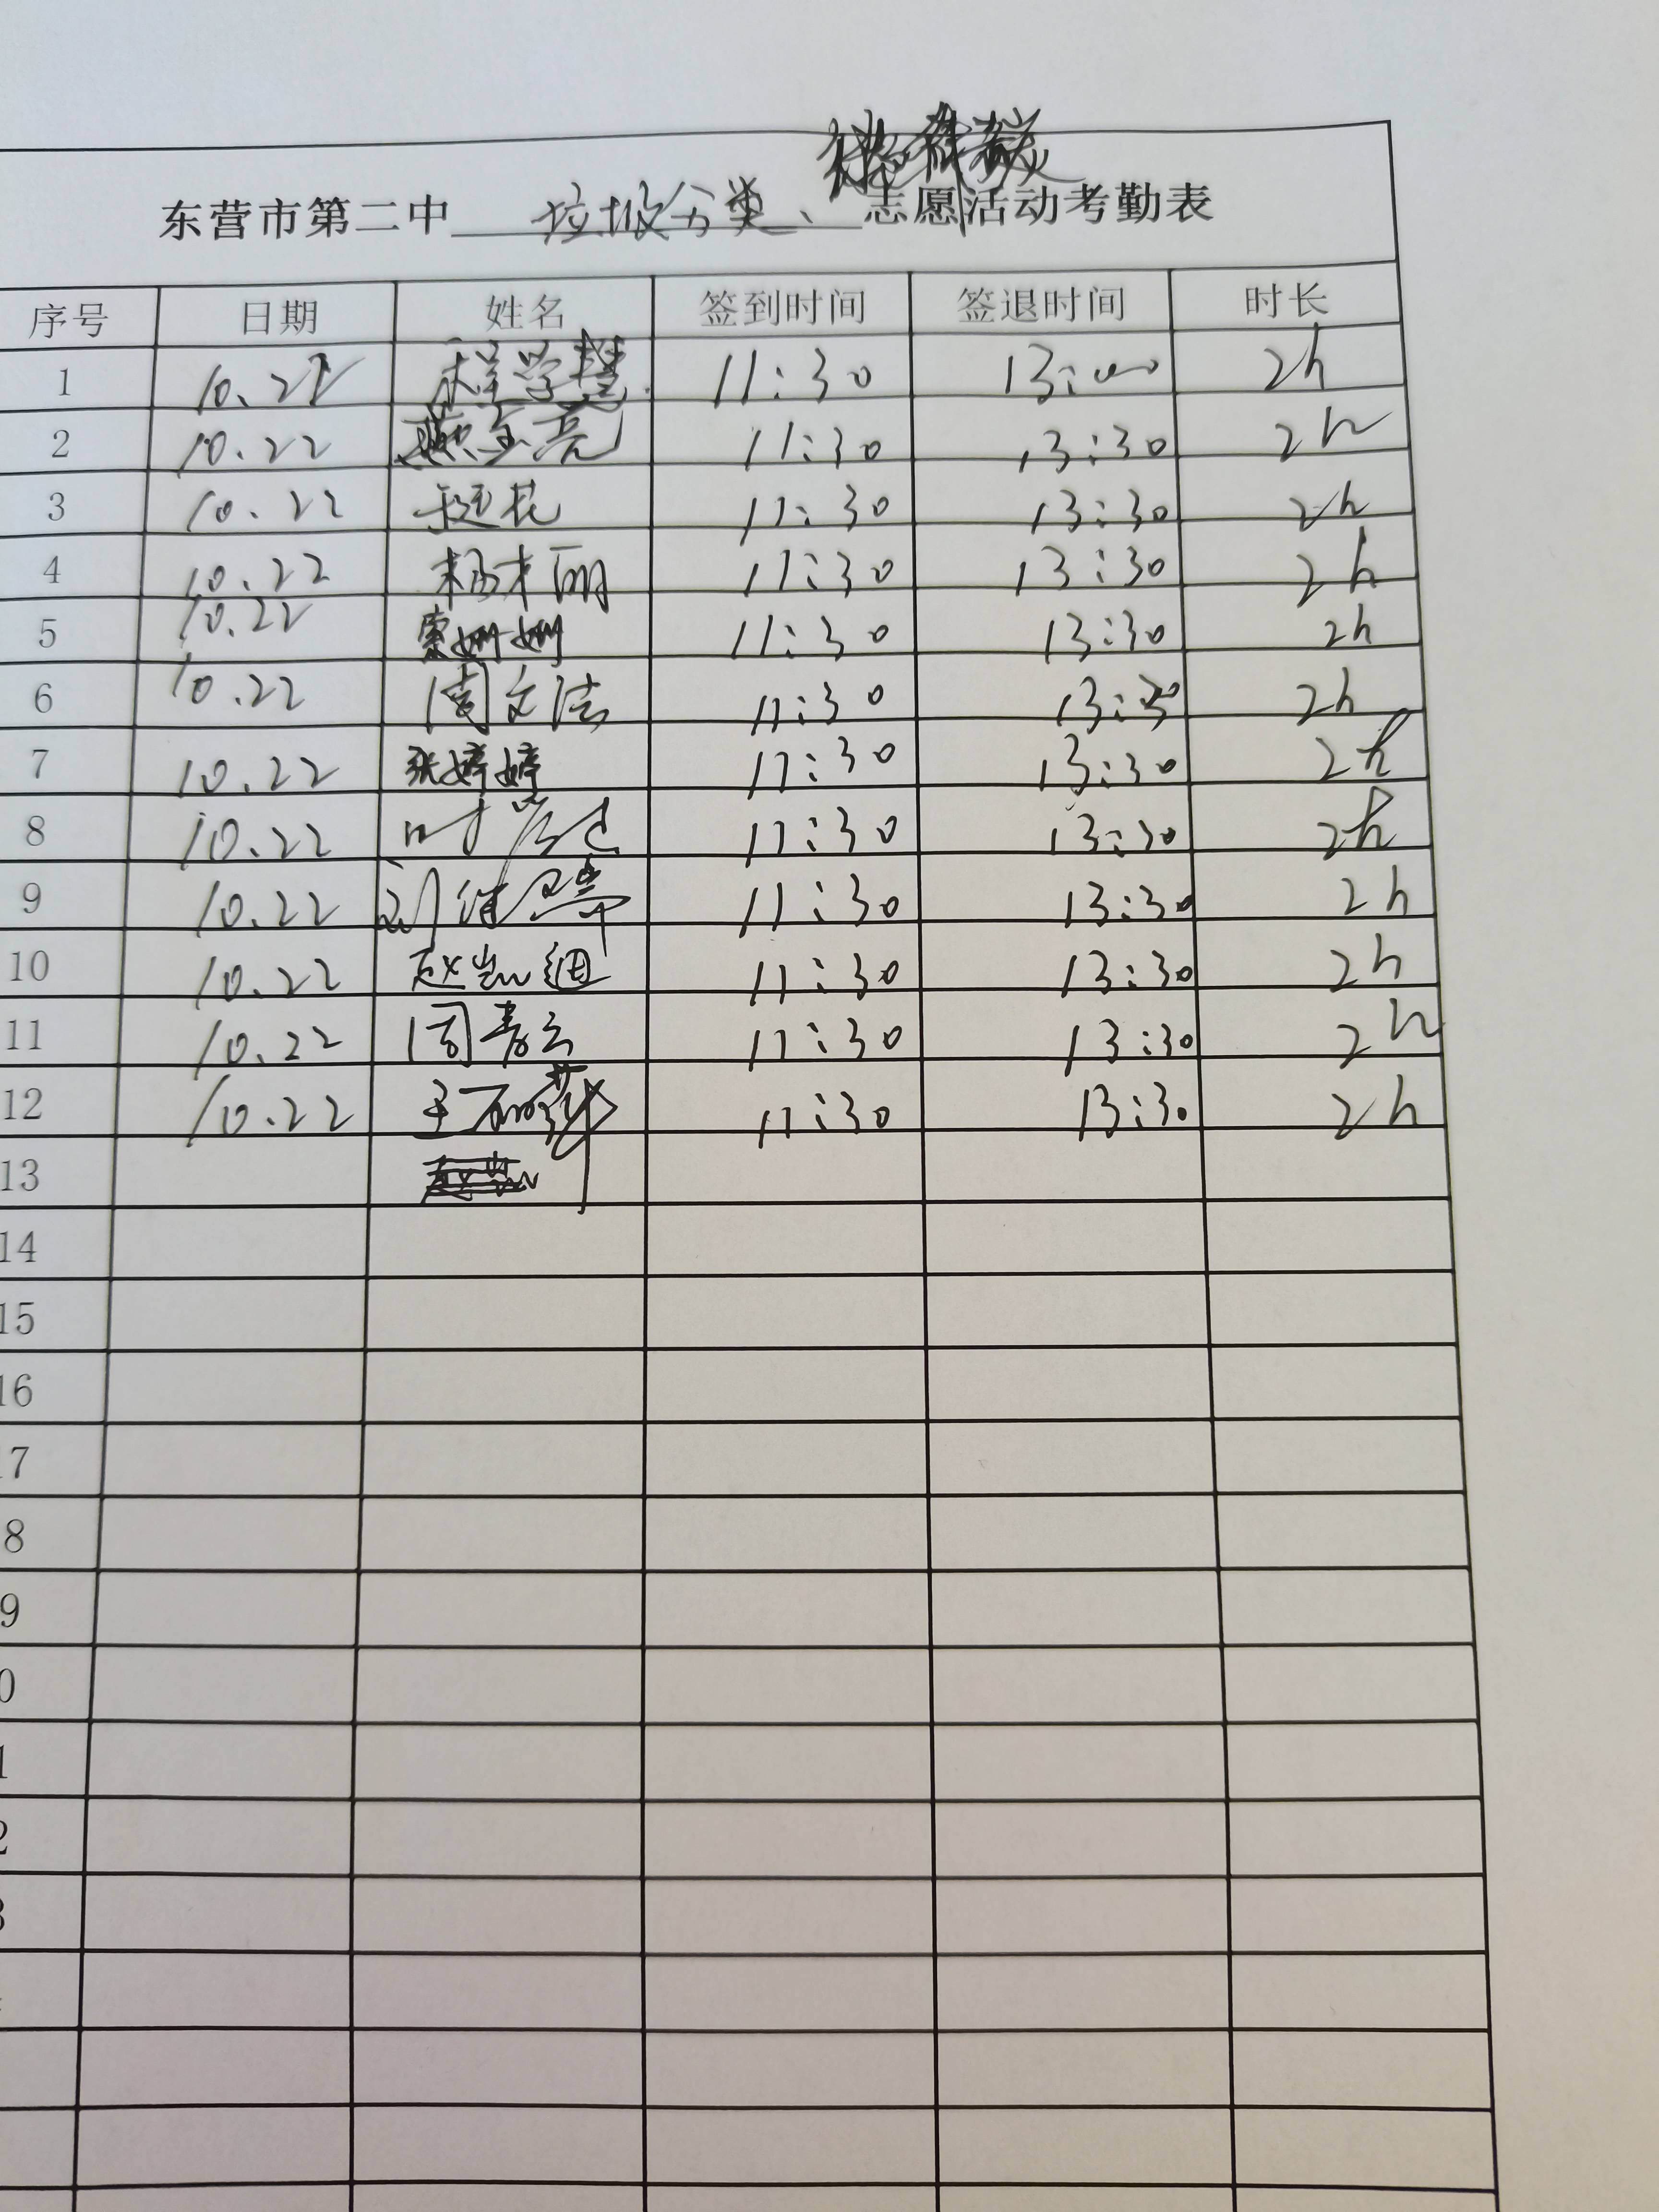 东营市第二中 垃圾分类、 志愿活动考勤表
序号 日期 姓名 签到时间 签退时间 时长
1 10.22 11:30 13:00 2h
2 10.22 11:30 13:30 2h
3 10.22 11:30 13:30 2h
4 10.22 杨丽 11:30 13:30 2h
5 10.22 索姗姗 11:30 13:30 2h
6 10.22 周文洁 11:30 13:30 2h
7 10.22 张婷婷 11:30 13:30 2h
8 10.22 11:30 13:30 2h
9 10.22 刘 11:30 13:30 2h
10 10.22 赵凯迪 11:30 13:30 2h
11 10.22 周春云 11:30 13:30 2h
12 10.22 王 11:30 13:30 2h
13
14
15
16
17
8
9
0
1
2
3